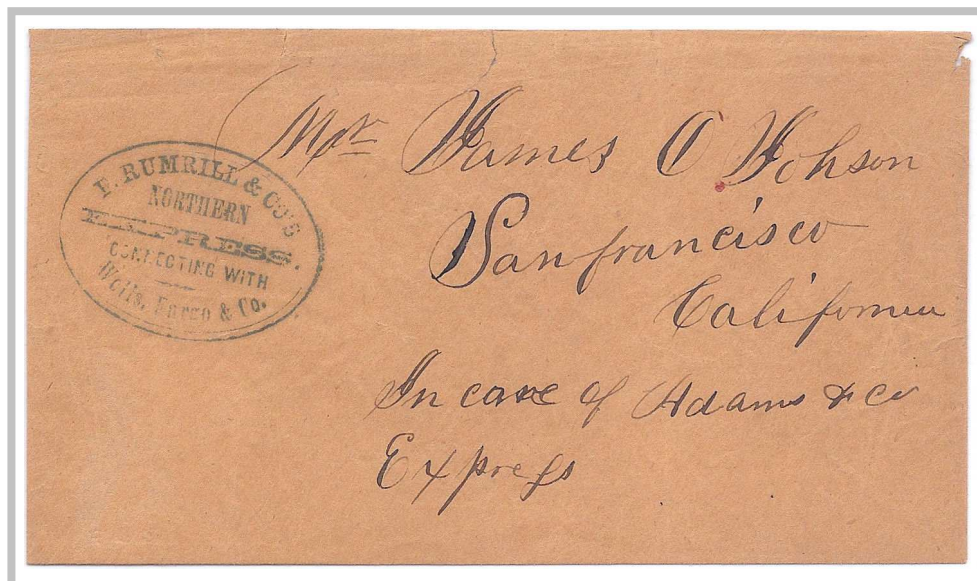 F. RUMRILL & CO'S
NORTHERN
EXPRESS.
CONNECTING WITH
Wells, Fargo & Co.
Mr James O Johson
San francisco
California
In care of Adams & Co
Express